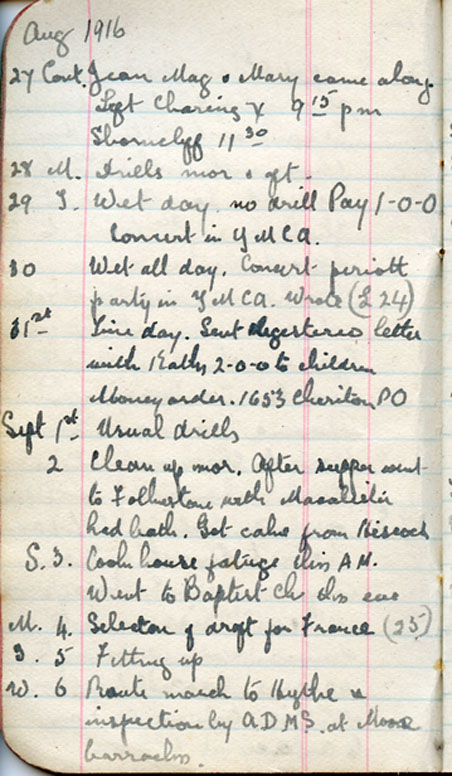 Aug 1916
27 Cont. Jean Mag & Mary came along
Left Charing X 9 15 pm
Shorncliff 11 30
28 M. Drills mor & aft -
29 T. Wet day. no drill Pay 1-0-0
Concert in YMCA.
30 Wet all day. Concert
party in YMCA. Wrote (L 24)
31st Fine day. Sent registered letter
with 2-0-0 to children
Money order. 1653 Cheriton PO
Sept 1st Usual drills
2 Clean up mor. After supper went
to Folkestone with Macallister
had bath. Got cake from Hiscock
S. 3. Cook house fatigue this A.M.
Went to Baptist Ch this eve
M. 4. Selection of draft for France (25)
T. 5 Fitting up
W. 6 Route march to Hythe &
inspection by A.D.M.S. at Moore
barracks.